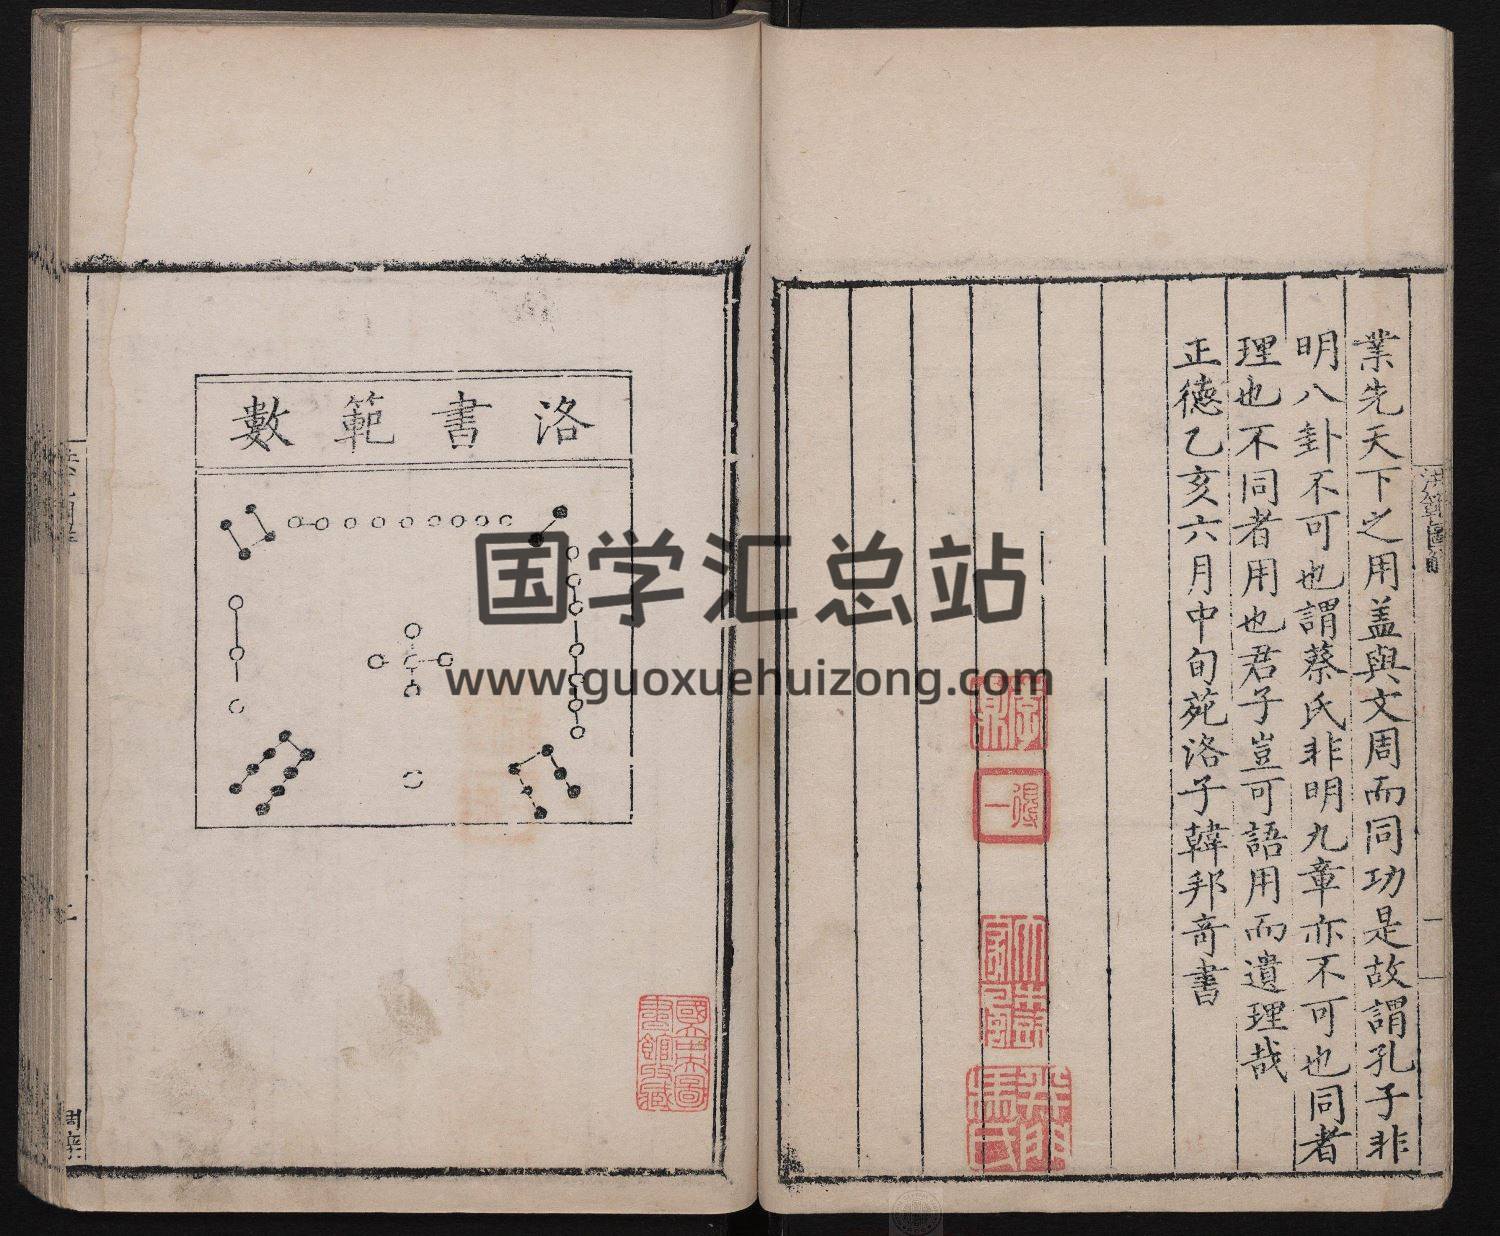 業先天下之用盖與文周而同功是故謂孔子非
明八卦不可也謂蔡氏非明九章亦不可也同者
理也不同者用也君子豈可語用而遺理哉
正德乙亥六月中旬苑洛子韓邦奇書
洛書範數
國立中央圖書館收藏
国学汇总站
www.guoxuehuizong.com